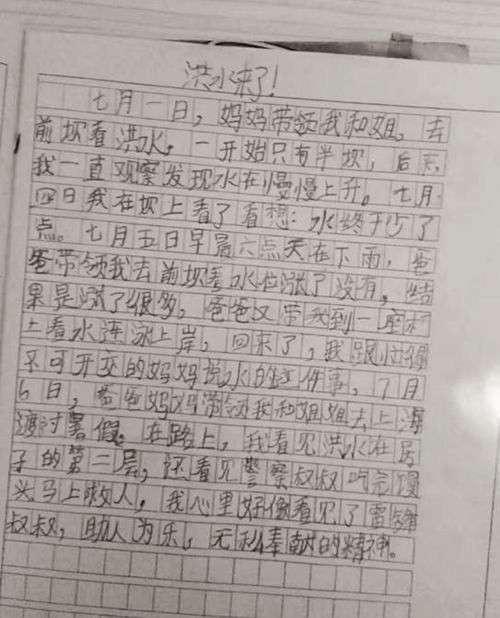 洪水来了!
七月一日，妈妈带领我和姐，去
前坝看洪水，一开始只有半坝，后来
我一直观察发现水在慢慢上升。七月
四日我在坝上看了看想：水终于少了
点。七月五日早晨六点天在下雨，爸
爸带领我去前坝看水位涨了没有，结
果是涨了很多，爸爸又带我到一座桥
上看水连上岸，回来了，我跟忙得
不可开交的妈妈说水的这件事，7月
6日，爸爸妈妈带领我和姐姐去上海
渡过暑假。在路上，我看见洪水在房
子的第二层，还看见警察叔叔吃完馒
头马上救人，我心里好像看见了雷锋
叔叔，助人为乐，无私奉献的精神。